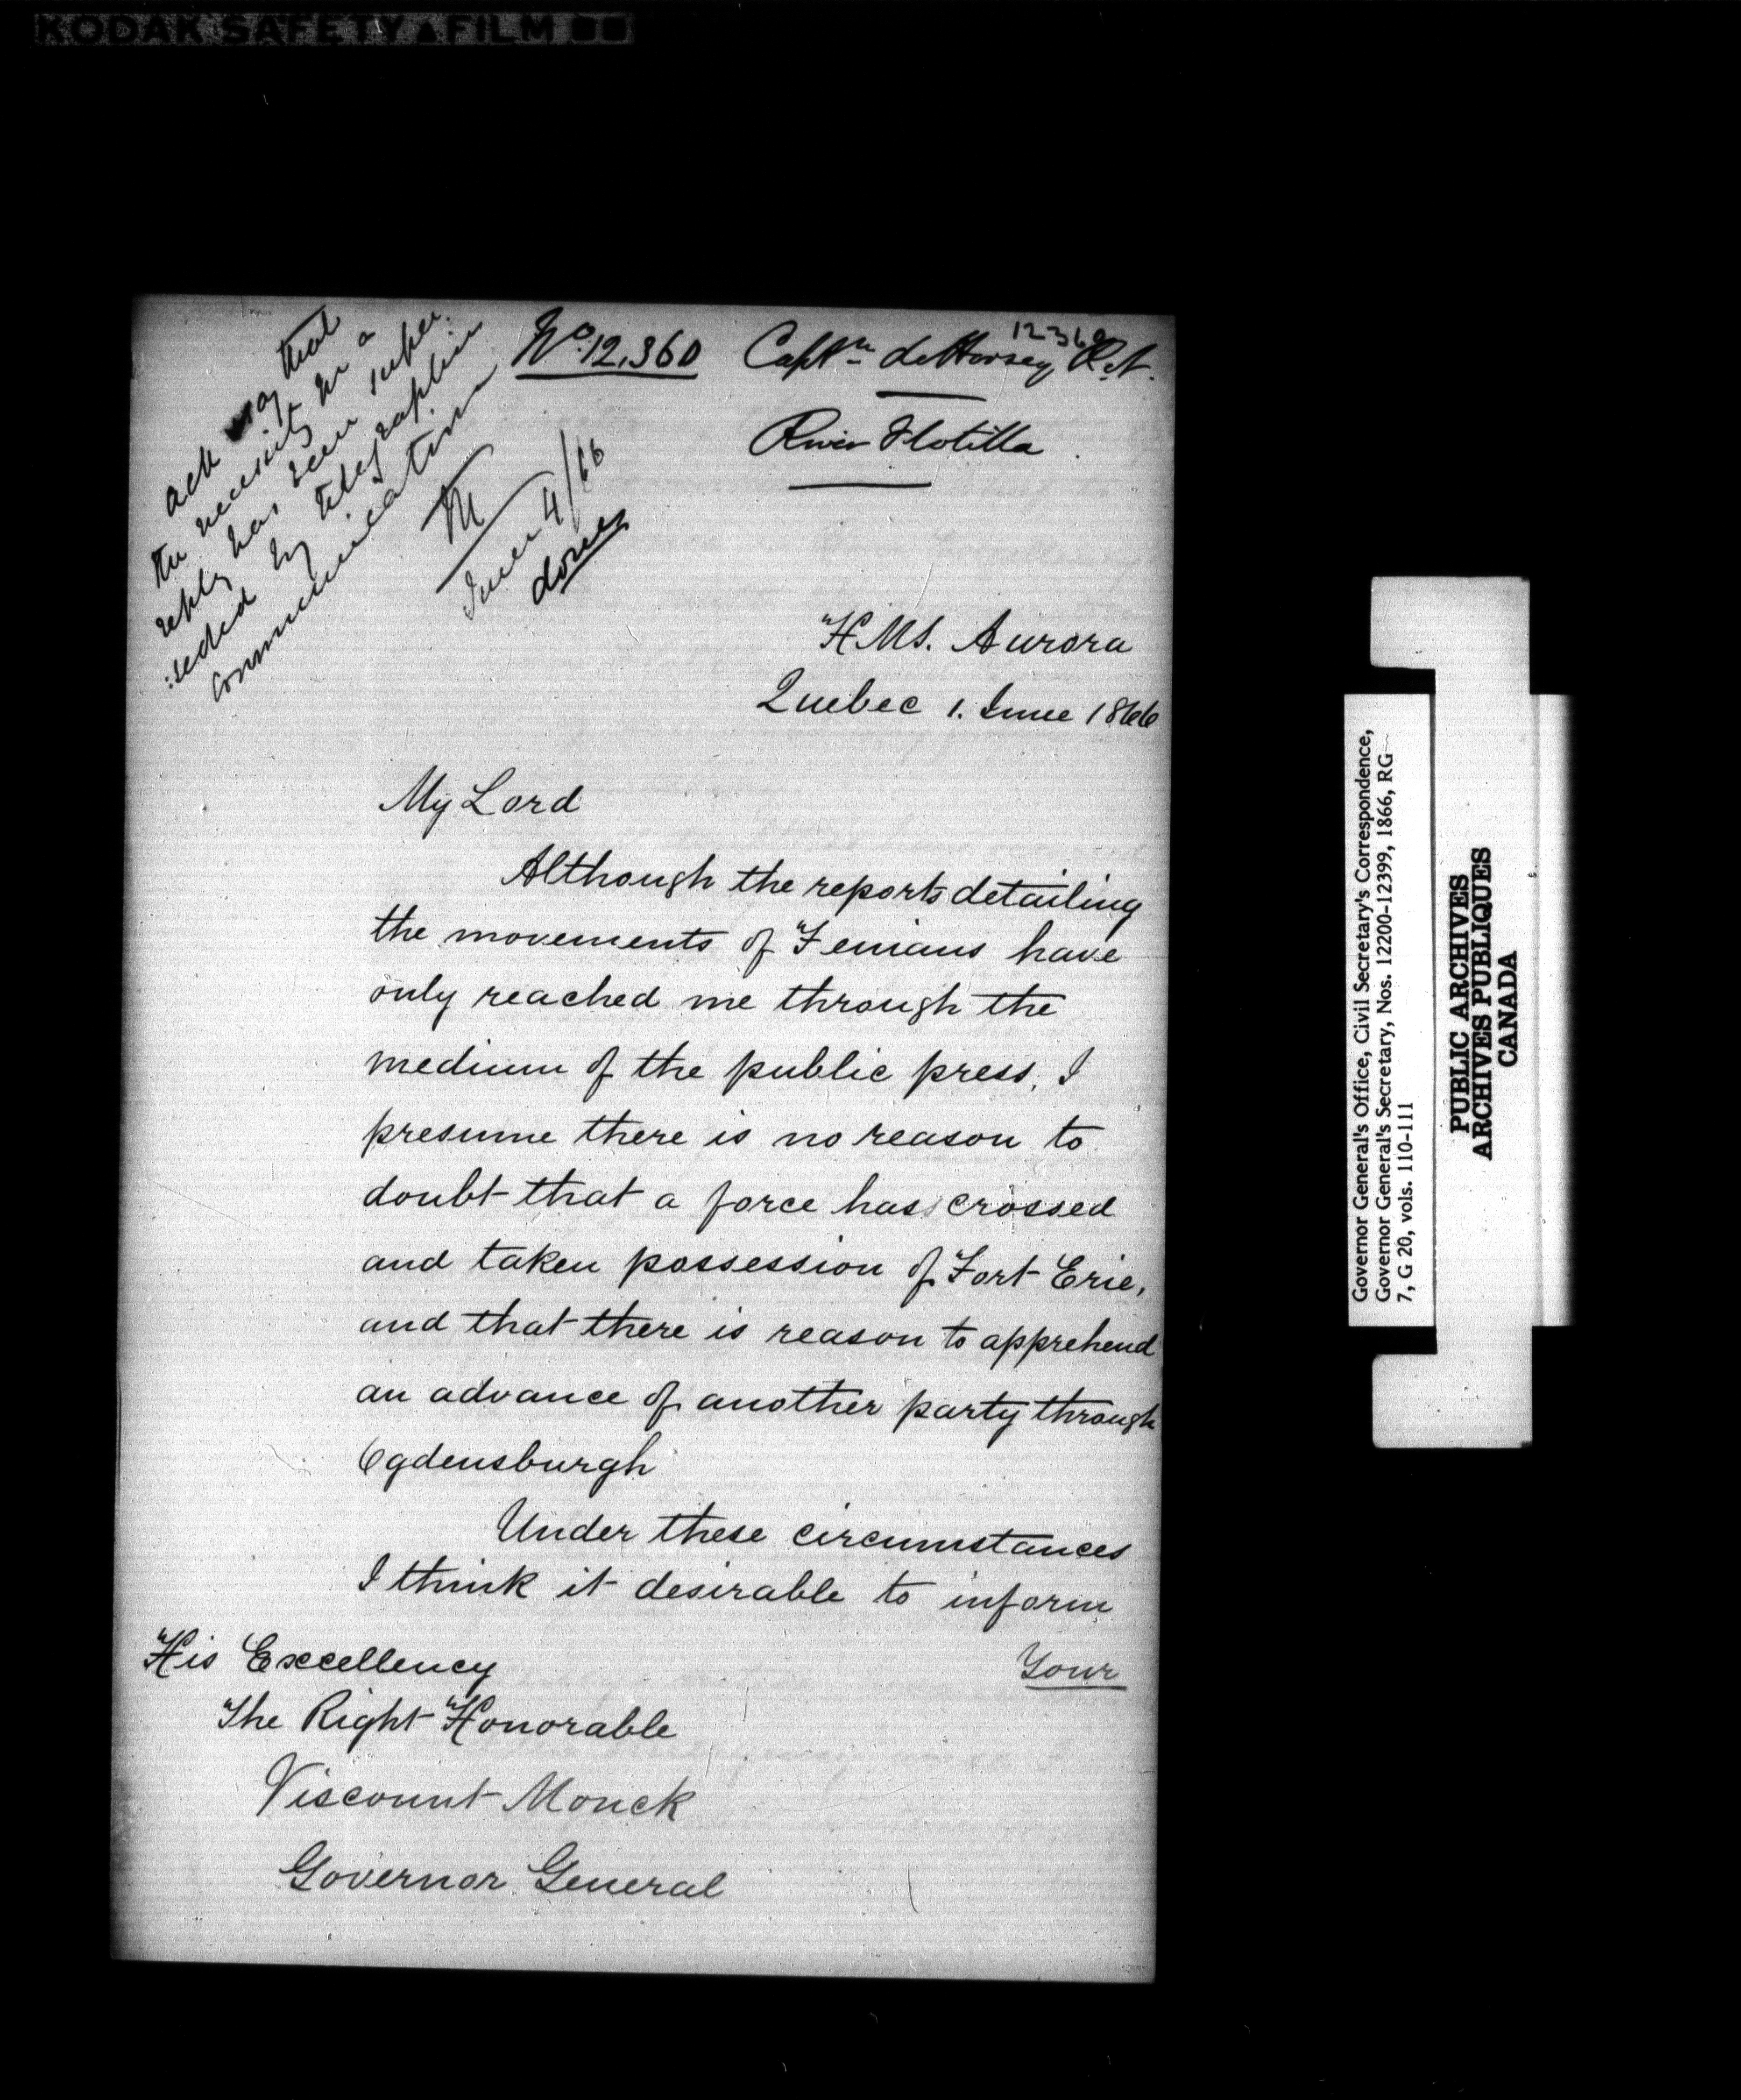 KODAK SAFETY FILM
12360
No. 12,360 Captn. de Horsey, R.N.
River Flotilla
ack say that
the necessity for a
reply has been super:
:seded by telegraphic
communication
M
June 4/66
done
H.M.S. Aurora
Quebec 1. June 1866
My Lord
Although the reports detailing
the movements of Fenians have
only reached me through the
medium of the public press, I
presume there is no reason to
doubt that a force has crossed
and taken possession of Fort Erie,
and that there is reason to apprehend
an advance of another party through
Ogdensburgh
Under these circumstances
I think it desirable to inform
Your
His Excellency
The Right Honorable
Viscount Monck
Governor General
Governor General's Office, Civil Secretary's Correspondence,
Governor General's Secretary, Nos. 12200-12399, 1866, RG
7, G 20, vols. 110-111
PUBLIC ARCHIVES
ARCHIVES PUBLIQUES
CANADA